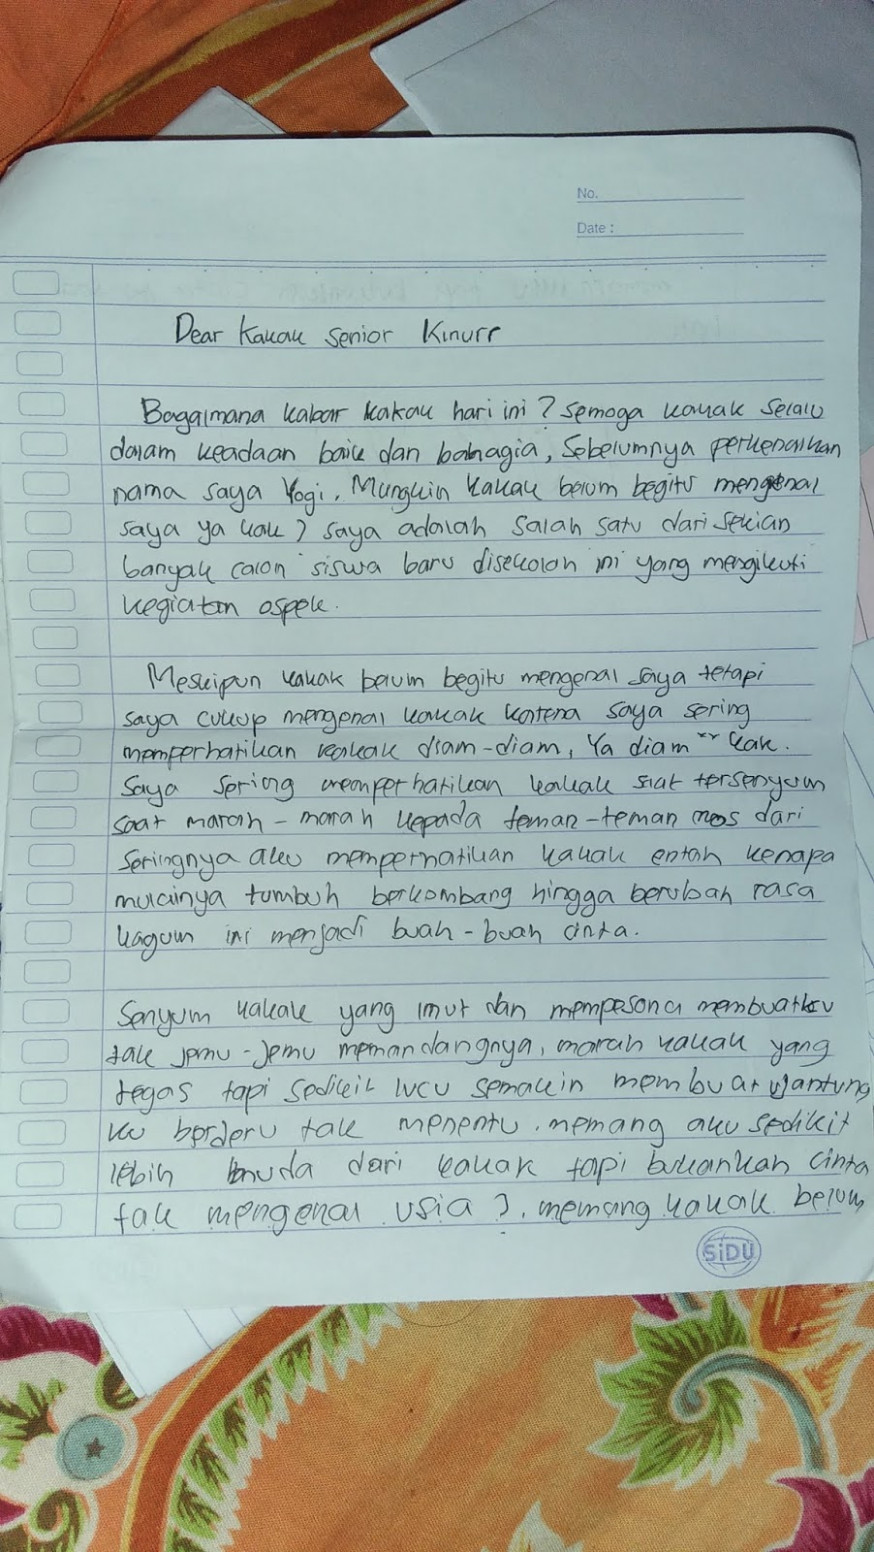 No.
Date :
Dear Kakak Senior Kinurr
Bagaimana kabar kakak hari ini ? Semoga kakak selalu
dalam keadaan baik dan bahagia, Sebelumnya perkenalkan
nama saya Yogi. Mungkin kakak belum begitu mengenal
saya ya kak ? saya adalah salah satu dari sekian
banyak calon siswa baru disekolah ini yang mengikuti
kegiatan ospek.
Meskipun kakak belum begitu mengenal saya tetapi
saya cukup mengenal kakak karena saya sering
memperhatikan kakak diam-diam, Ya diam" kak.
Saya sering memperhatikan kakak saat tersenyum
saat marah - marah kepada teman-teman mos dari
seringnya aku memperhatikan kakak entah kenapa
mulainya tumbuh berkembang hingga berubah rasa
kagum ini menjadi buah - buah cinta.
Senyum kakak yang imut dan mempesona membuatku
tak jemu - jemu memandangnya, marah kakak yang
tegas tapi sedikit lucu semakin membuat jantung
ku berderu tak menentu. memang aku sedikit
lebih muda dari kakak tapi bukankah cinta
tak mengenal usia ?. memang kakak belum
SiDU